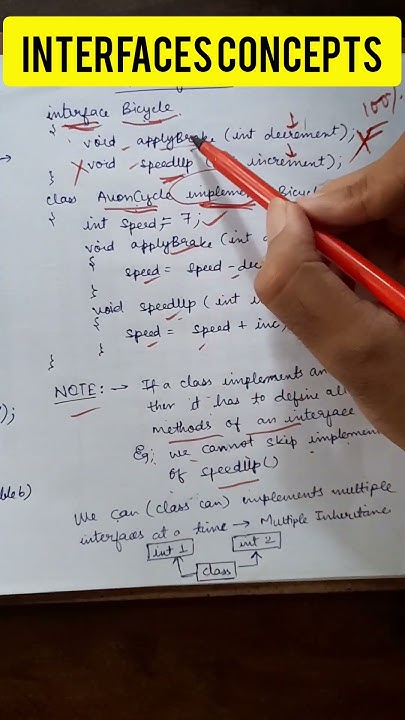 INTERFACES CONCEPTS
100%
interface Bicycle
{ void applyBrake (int decrement);
void speedUp (int increment);
}
class AvonCycle implements Bicycle
{ int speed = 7;
void applyBrake (int
{
speed = speed -
}
void speedUp (int
{
speed = speed + inc;
}
}
NOTE: → If a class implements an
then it has to define all
methods of an interface
Eg; we cannot skip implement
of speedUp()
);
ble b)
We can (class can) implements multiple
interfaces at a time → Multiple Inheritane
int 1 int 2
class